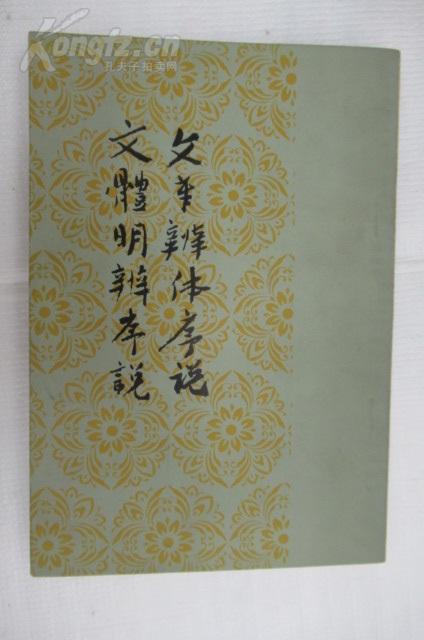 文章辨体序说
文體明辨序説
Kongfz.cn
孔夫子拍卖网